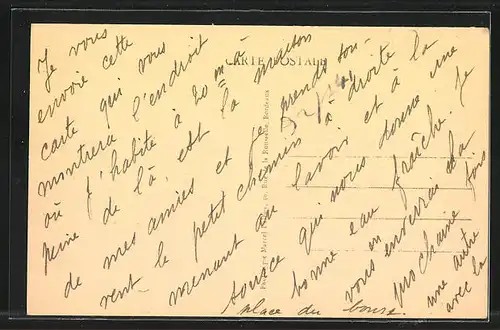 CARTE POSTALE
Je vous
envoie cette
carte qui vous
montrera l'endroit
où j'habite à 20 m à
peine de là, est la maison
de mes amies et je prends sou-
vent le petit chemin à droite
menant au lavoir et à la
source qui nous donne une
bonne eau fraîche. Je
vous en enverrai la
prochaine fois
une autre
avec la
place du bourg.